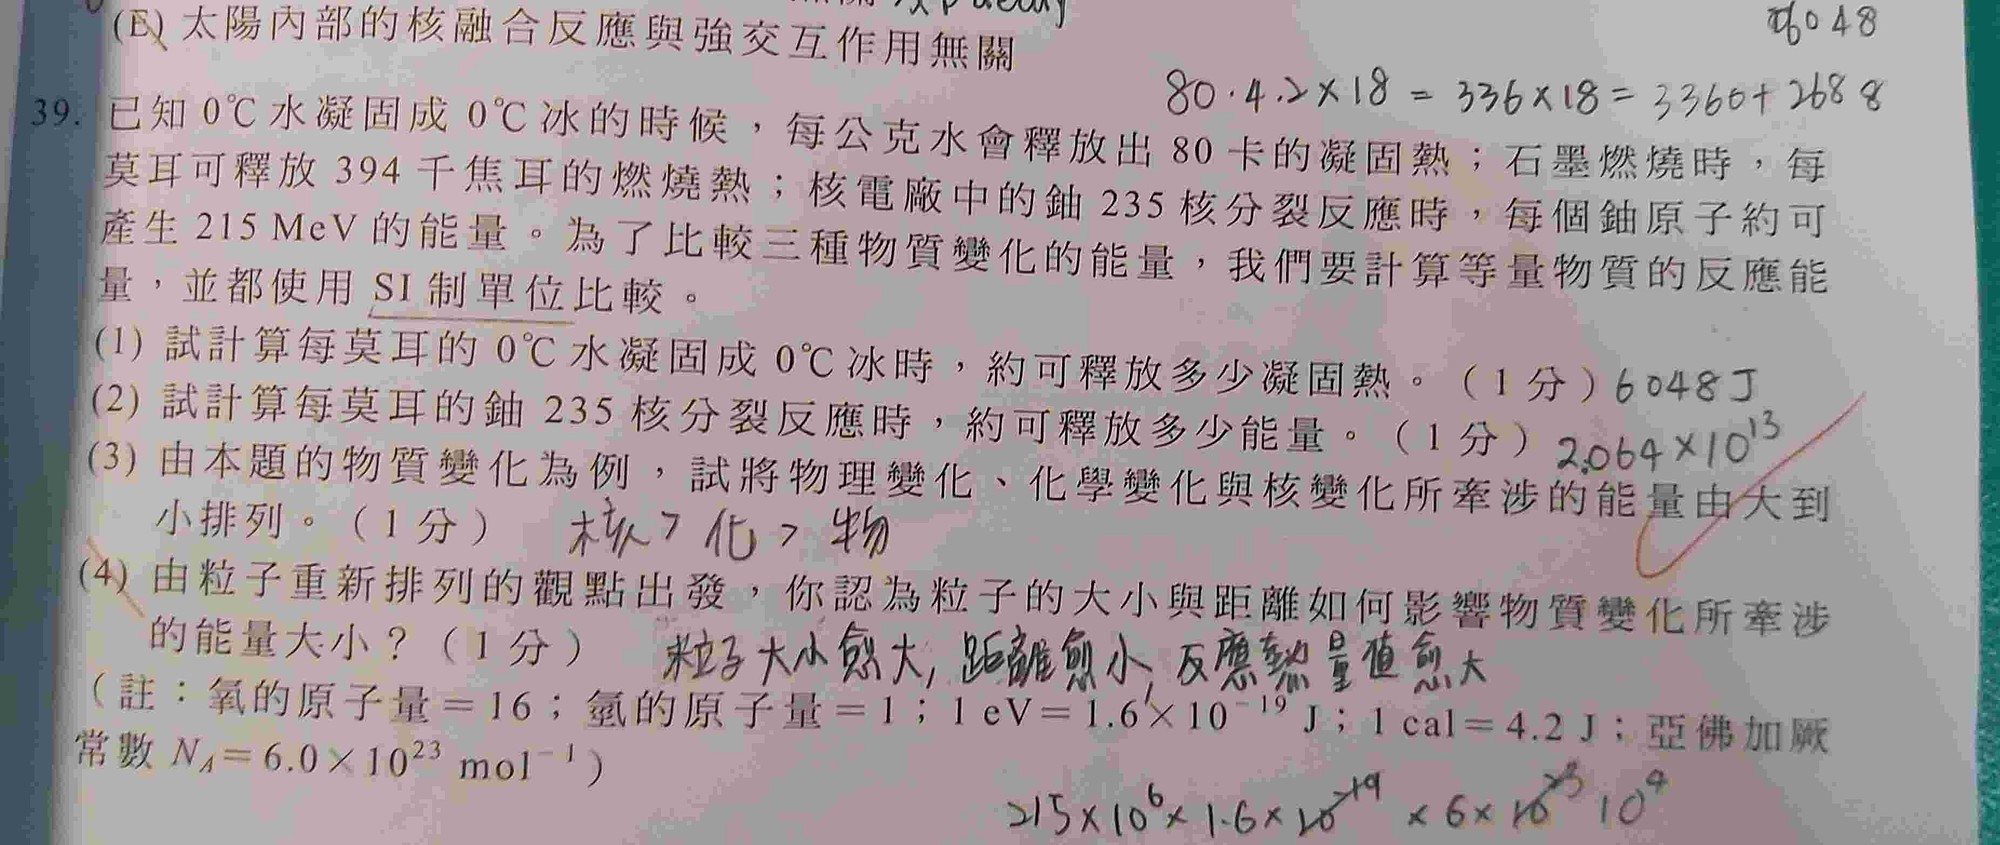 (E) 太陽內部的核融合反應與強交互作用無關
6048
80·4.2×18=336×18=3360+2688
39. 已知 0℃ 水凝固成 0℃ 冰的時候，每公克水會釋放出 80 卡的凝固熱；石墨燃燒時，每
莫耳可釋放 394 千焦耳的燃燒熱；核電廠中的鈾 235 核分裂反應時，每個鈾原子約可
產生 215 MeV 的能量。為了比較三種物質變化的能量，我們要計算等量物質的反應能
量，並都使用 SI 制單位比較。
(1) 試計算每莫耳的 0℃ 水凝固成 0℃ 冰時，約可釋放多少凝固熱。（1 分）6048J
(2) 試計算每莫耳的鈾 235 核分裂反應時，約可釋放多少能量。（1 分）2.064×10¹³
(3) 由本題的物質變化為例，試將物理變化、化學變化與核變化所牽涉的能量由大到
小排列。（1 分） 核>化>物
(4) 由粒子重新排列的觀點出發，你認為粒子的大小與距離如何影響物質變化所牽涉
的能量大小？（1 分） 粒子大小愈大,距離愈小,反應熱量值愈大
（註：氧的原子量＝16；氫的原子量＝1；1 eV＝1.6×10⁻¹⁹ J；1 cal＝4.2 J；亞佛加厥
常數 N_A＝6.0×10²³ mol⁻¹）
215×10⁶×1.6×10⁻¹⁹×6×10²³ 10⁴